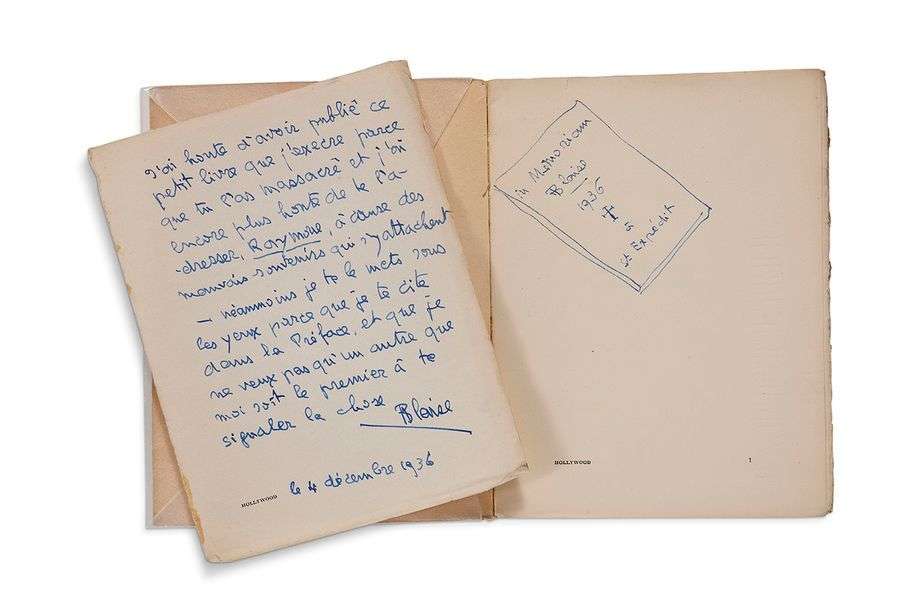 J'ai honte d'avoir publié ce
petit livre que j'exècre parce
que tu l'as massacré et j'ai
encore plus honte de te l'a-
-dresser, Raymone, à cause des
mauvais souvenirs qui s'y attachent
— néanmoins je te le mets sous
les yeux parce que je te cite
dans la Préface, et que je
ne veux pas qu'un autre que
moi soit le premier à te
signaler la chose
Blaise
le 4 décembre 1936
HOLLYWOOD
in Memoriam
Blaise
1936
†
à
St Expédit
HOLLYWOOD
1